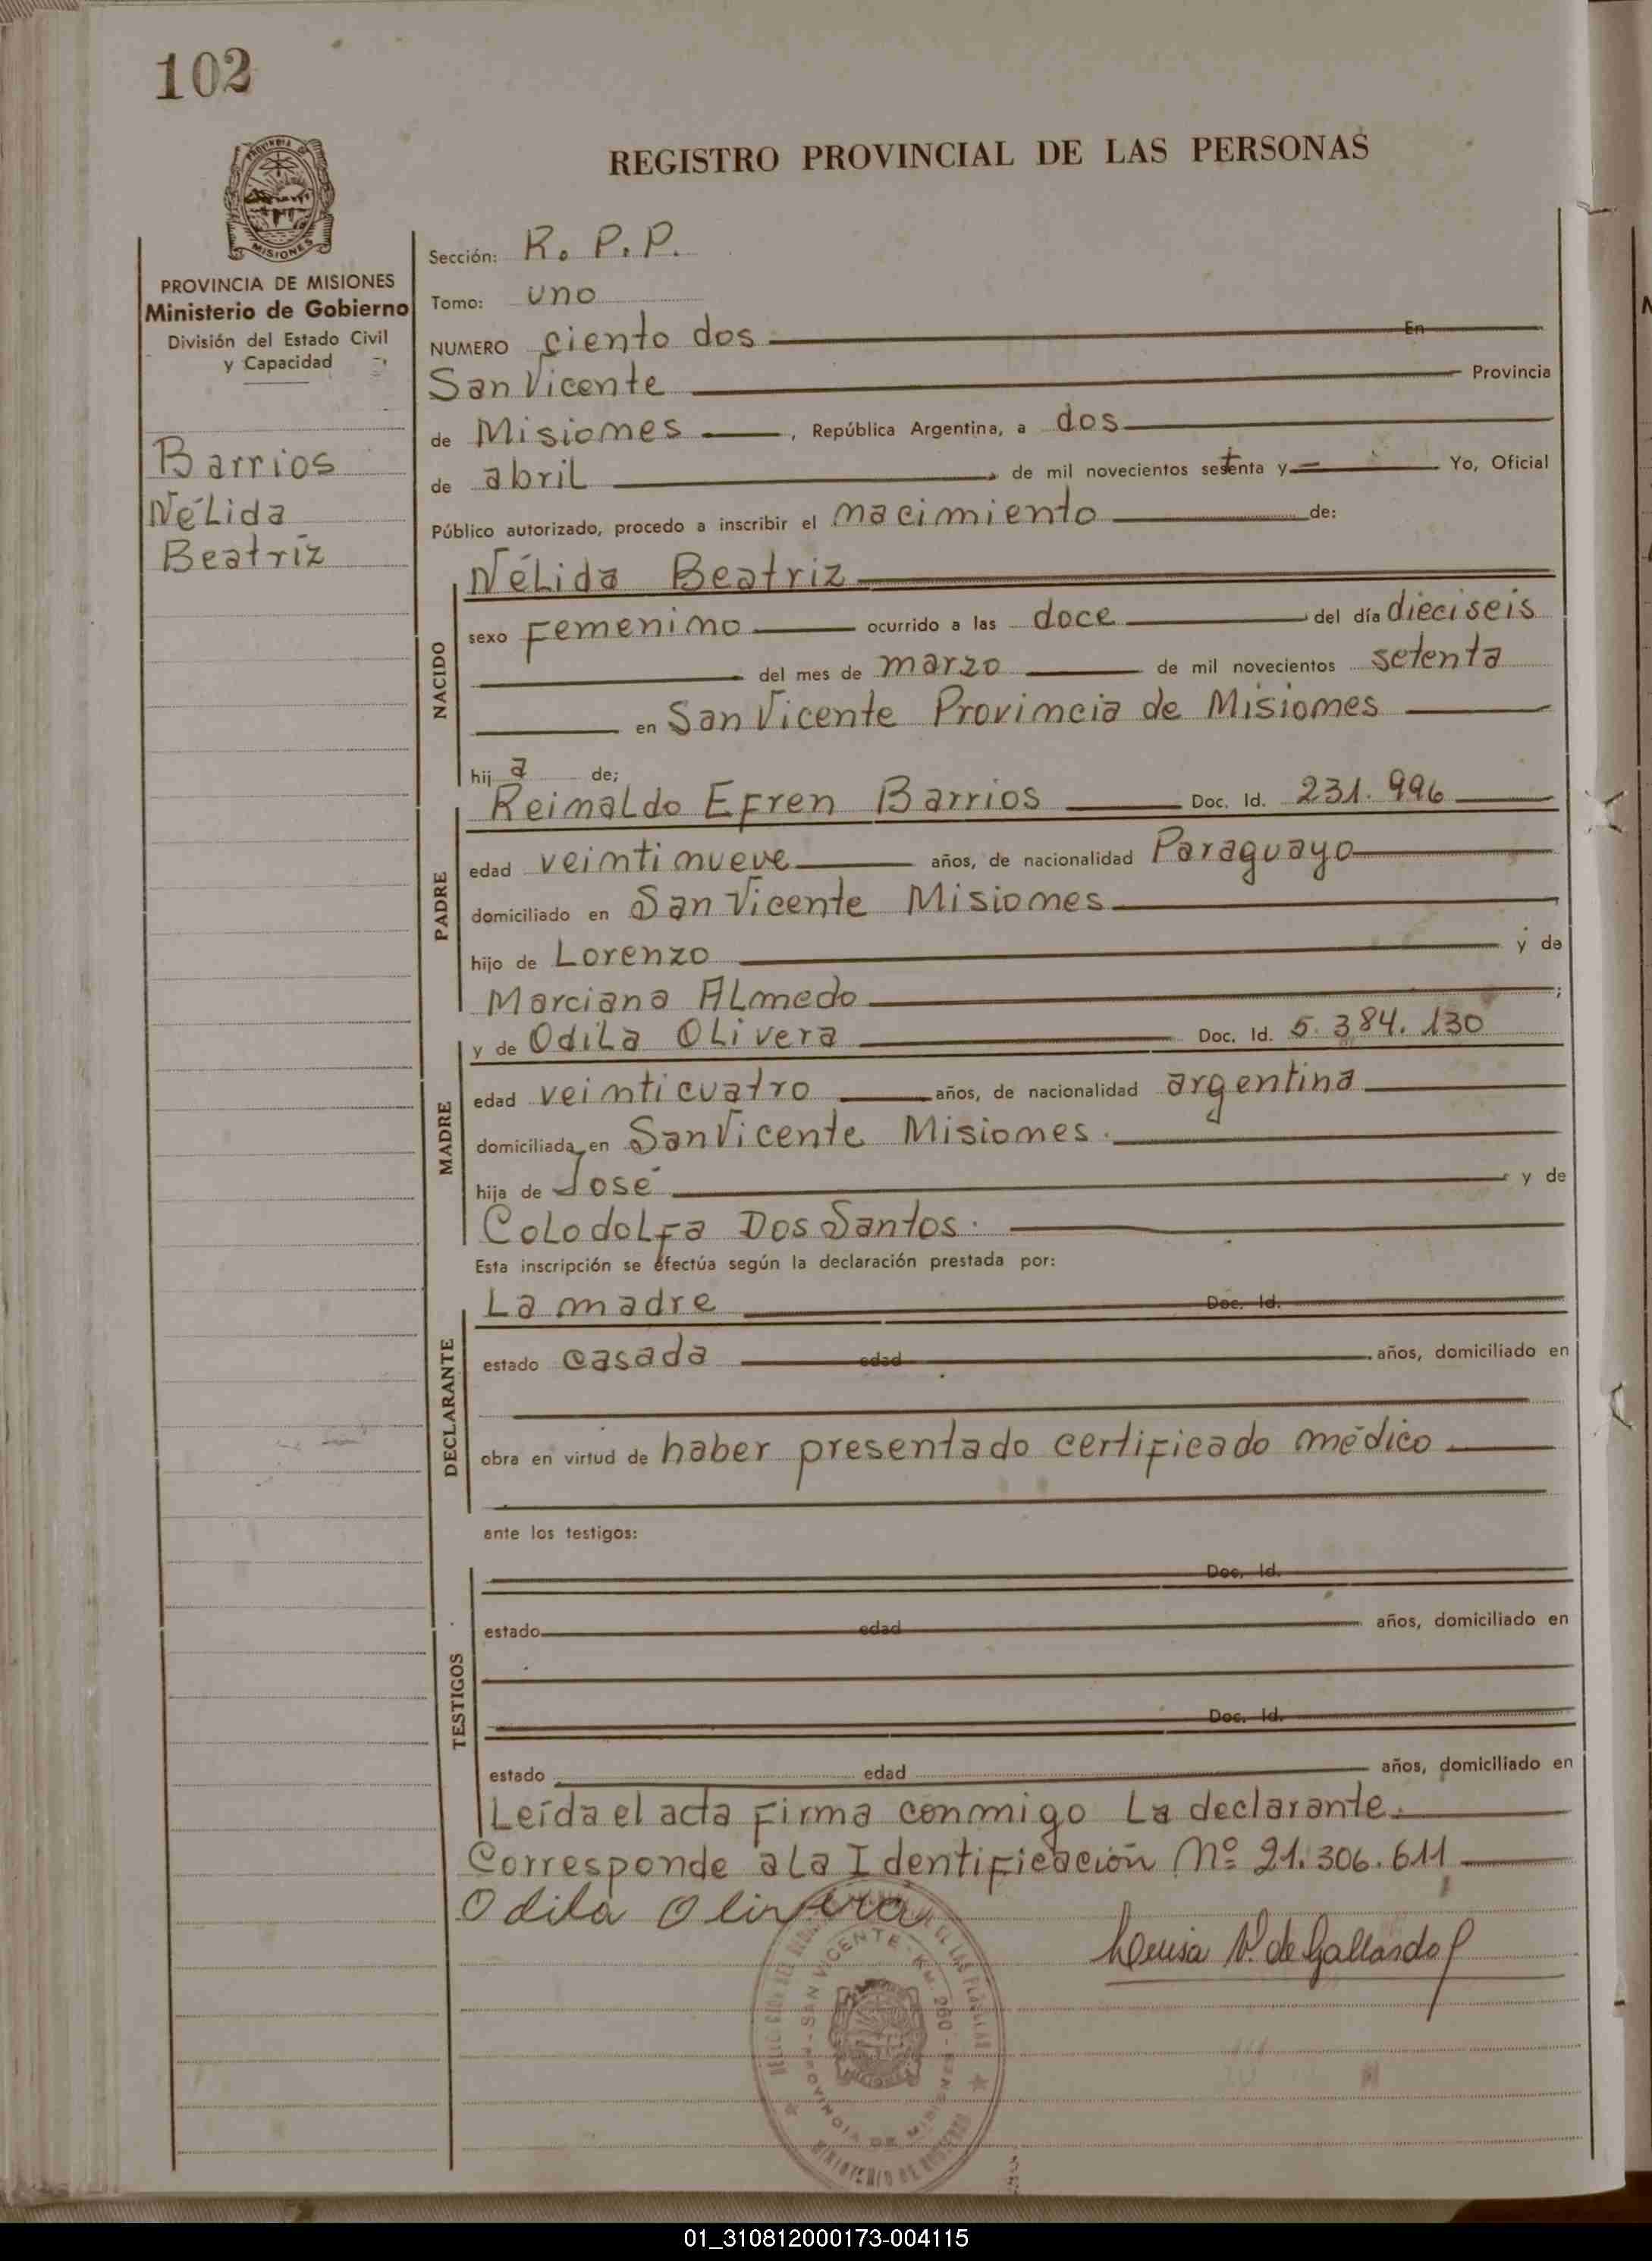 102
REGISTRO PROVINCIAL DE LAS PERSONAS
MISIONES
PROVINCIA DE MISIONES
Ministerio de Gobierno
División del Estado Civil
y Capacidad
Barrios
Nélida
Beatríz
Sección: R. P. P.
Tomo: uno
NUMERO ciento dos En
San Vicente Provincia
de Misiones, República Argentina, a dos
de abril, de mil novecientos setenta y Yo, Oficial
Público autorizado, procedo a inscribir el nacimiento de:
NACIDO
Nélida Beatriz
sexo Femenino ocurrido a las doce del día dieciseis
del mes de marzo de mil novecientos setenta
en San Vicente Provincia de Misiones
hij a de;
PADRE
Reinaldo Efren Barrios Doc. Id. 231.996
edad veintinueve años, de nacionalidad Paraguayo
domiciliado en San Vicente Misiones
hijo de Lorenzo y de
Marciana Almedo;
MADRE
y de Odila Olivera Doc. Id. 5.384.130
edad veinticuatro años, de nacionalidad argentina
domiciliada en San Vicente Misiones.
hija de José y de
Colodolfa Dos Santos.
Esta inscripción se efectúa según la declaración prestada por:
DECLARANTE
La madre Doc. Id.
estado casada edad años, domiciliado en
obra en virtud de haber presentado certificado médico
ante los testigos:
TESTIGOS
Doc. Id.
estado edad años, domiciliado en
Doc. Id.
estado edad años, domiciliado en
Leída el acta firma conmigo la declarante.
Corresponde a la Identificación Nº 21.306.611
Odila Olivera
Luisa V. de Gallardo
SAN VICENTE - Km. 260 -
PROVINCIA DE MISIONES
MINISTERIO DE GOBIERNO
01_310812000173-004115